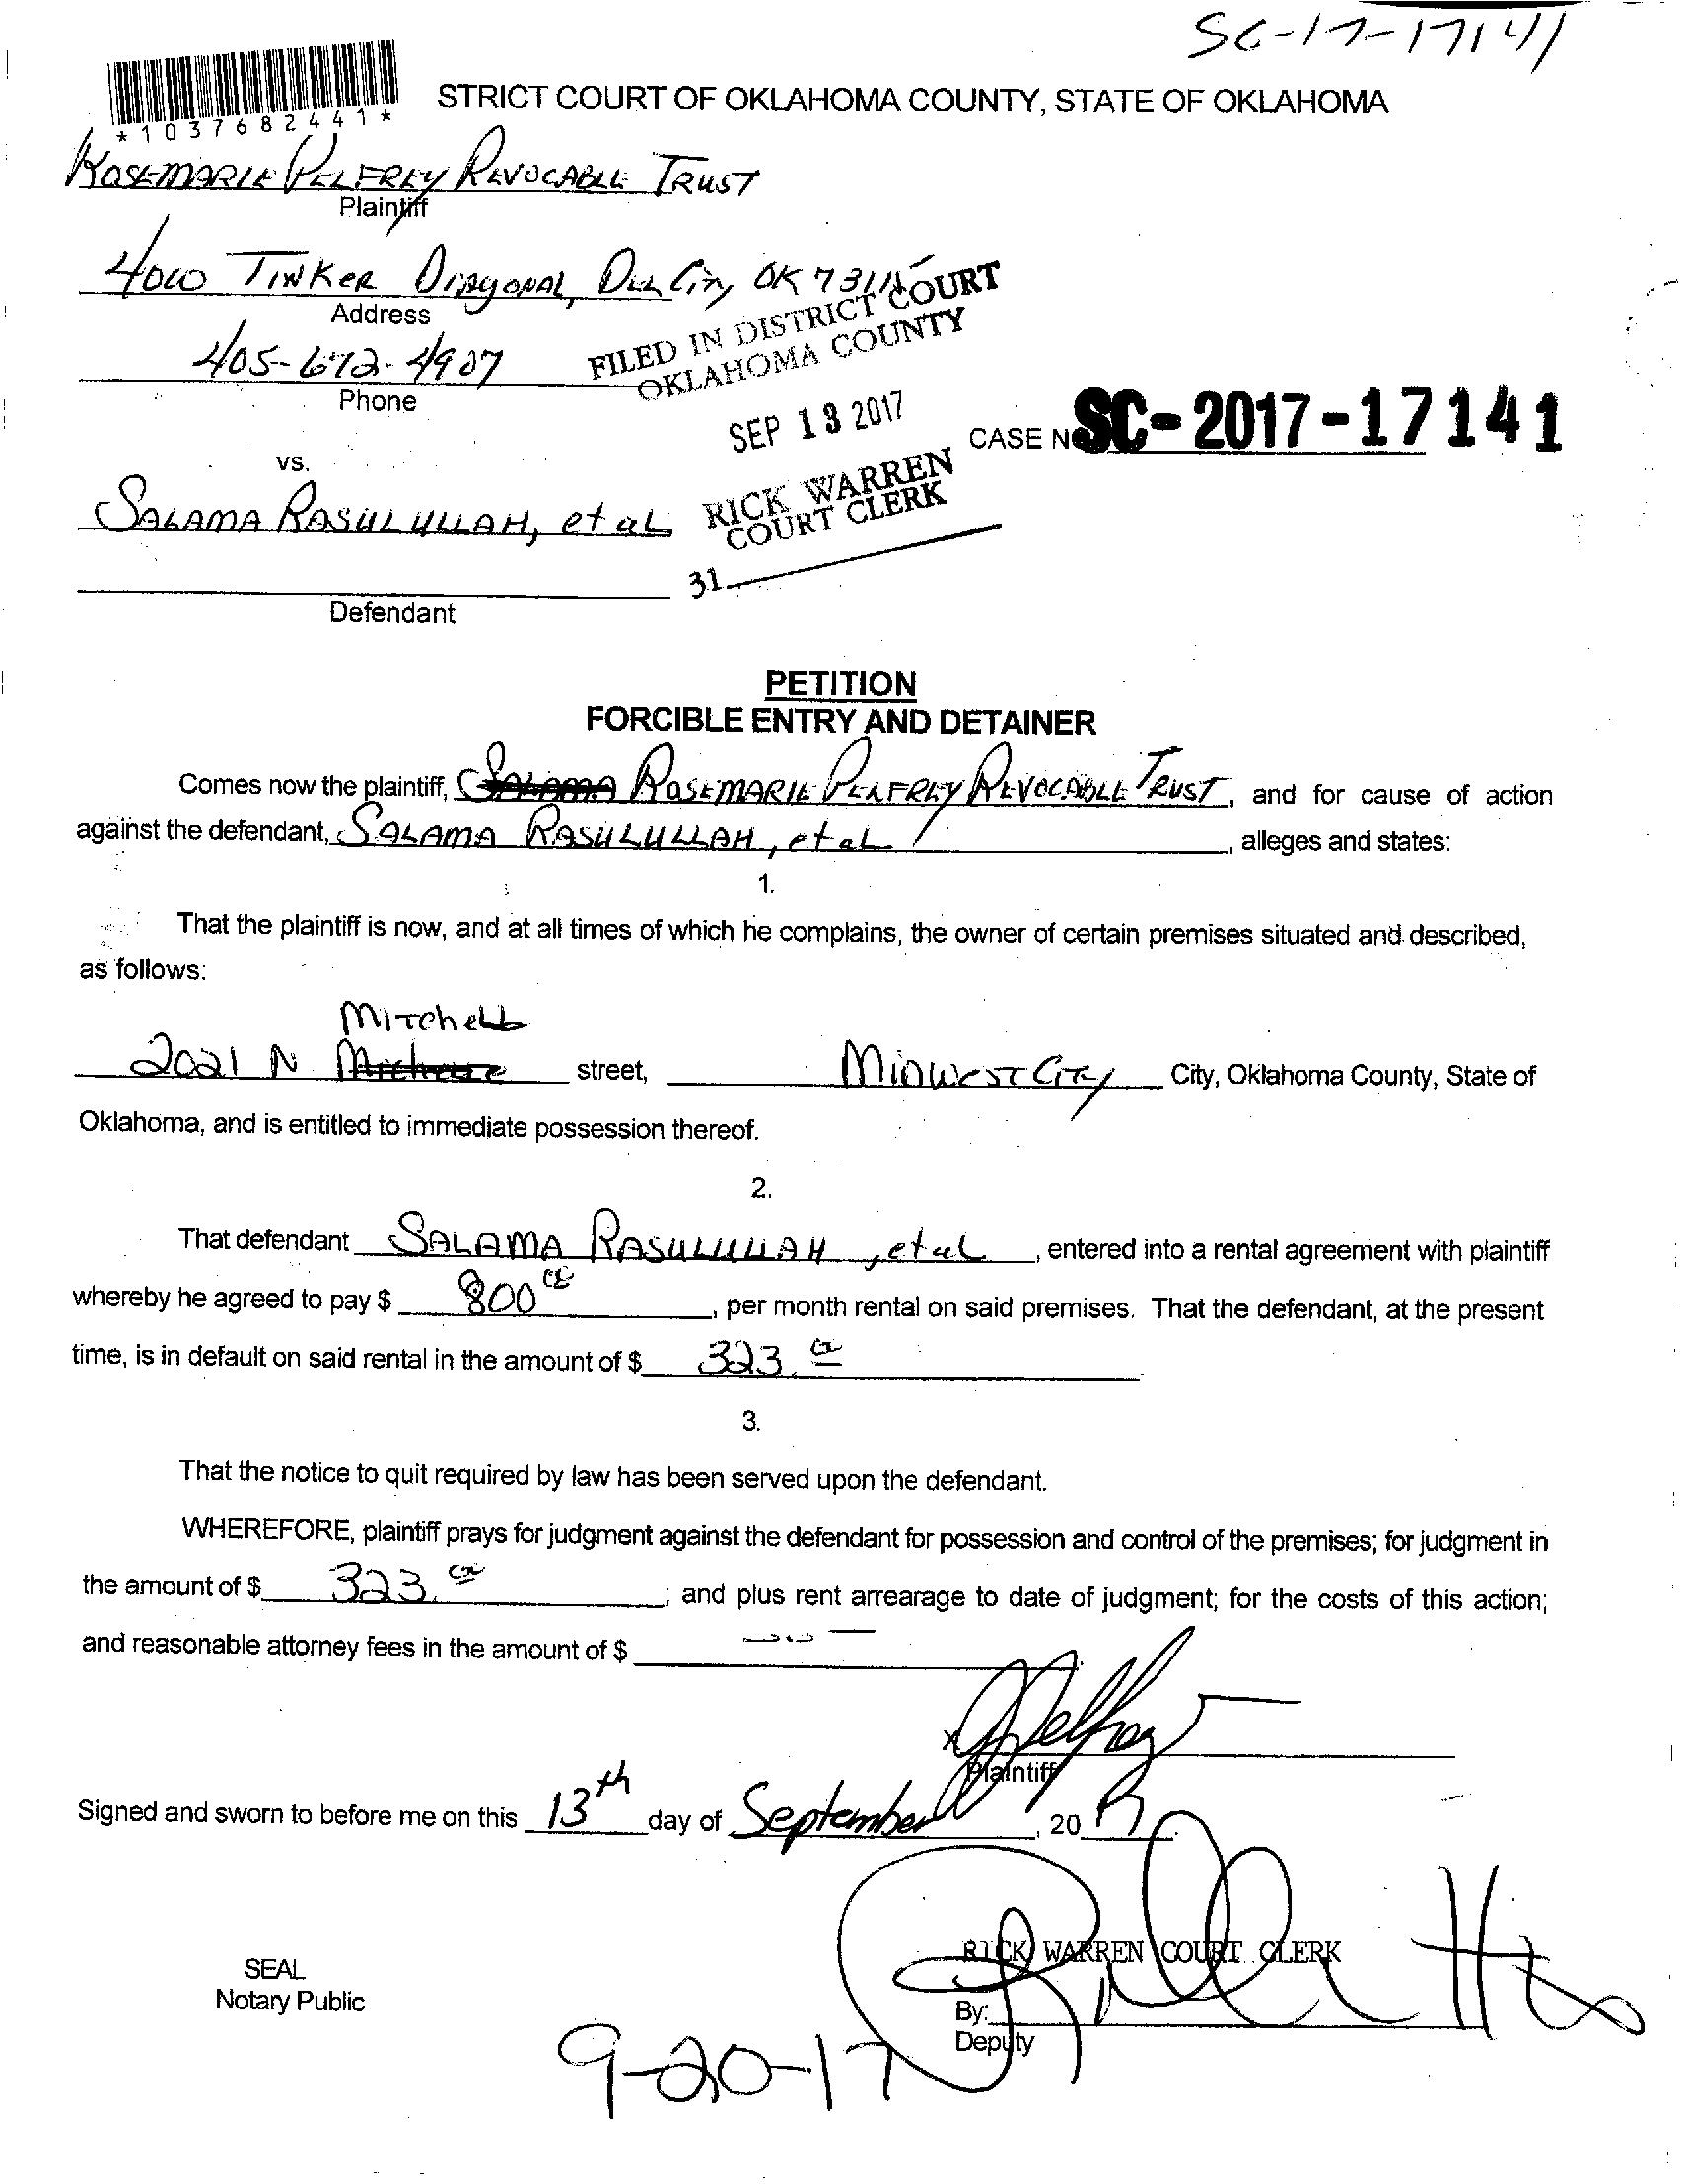 SC-17-17141
*1037682441*
STRICT COURT OF OKLAHOMA COUNTY, STATE OF OKLAHOMA
ROSEMARIE PELFREY REVOCABLE TRUST
Plaintiff
TINKER DIAGONAL, DEL CITY, OK 73115
Address
405-672-4907
Phone
FILED IN DISTRICT COURT
OKLAHOMA COUNTY
SEP 13 2017
RICK WARREN
COURT CLERK
31
CASE NO SC-2017-17141
vs.
SALAMA RASULULLAH, et al
Defendant
PETITION
FORCIBLE ENTRY AND DETAINER
Comes now the plaintiff, SALAMA ROSEMARIE PELFREY REVOCABLE TRUST, and for cause of action
against the defendant, SALAMA RASULULLAH, et al, alleges and states:
1.
That the plaintiff is now, and at all times of which he complains, the owner of certain premises situated and described,
as follows:
Mitchell
2021 N street, Midwest City City, Oklahoma County, State of
Oklahoma, and is entitled to immediate possession thereof.
2.
That defendant SALAMA RASULULLAH, et al, entered into a rental agreement with plaintiff
whereby he agreed to pay $ 800, per month rental on said premises. That the defendant, at the present
time, is in default on said rental in the amount of $ 323.
3.
That the notice to quit required by law has been served upon the defendant.
WHEREFORE, plaintiff prays for judgment against the defendant for possession and control of the premises; for judgment in
the amount of $ 323.; and plus rent arrearage to date of judgment; for the costs of this action;
and reasonable attorney fees in the amount of $
x Pelfrey
Plaintiff
Signed and sworn to before me on this 13th day of September, 2017.
RICK WARREN COURT CLERK
SEAL
Notary Public
By:
Deputy
9-20-17